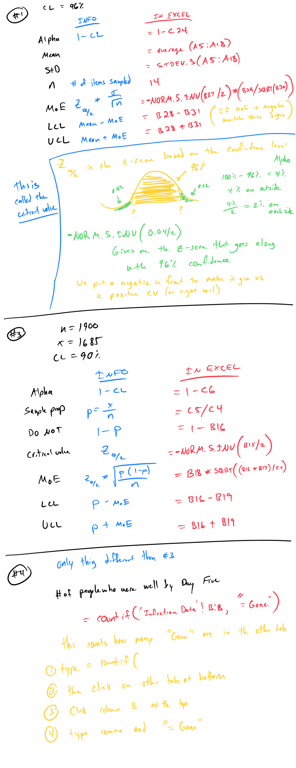 #1 CL = 96%
INFO IN EXCEL
Alpha 1-CL = 1-C24
Mean = average (A5:A18)
StD = STDEV.S(A5:A18)
n # of items sampled 14
MoE Z α/2 * S/√n = -NORM.S.INV(B27/2)*(B29/SQRT(B30))
LCL Mean - MoE = B28 - B31
UCL Mean + MoE = B28 + B31
Z α/2 is the z-score based on the confidence level
This is called the critical value
96%
Alpha
100% - 96% = 4%
4% on outside
4%/2 = 2% on each side
=NORM.S.INV(0.04/2)
Gives me the z-score that goes along
with 96% confidence
We put a negative in front to make it give us
a positive CV (or right tail)
#3 n = 1900
x = 1685
CL = 90%
INFO IN EXCEL
Alpha 1-CL = 1-C6
Sample prop p = x/n = C5/C4
DO NOT 1-p = 1-B16
Critical value Z α/2 = -NORM.S.INV(B15/2)
MoE Z α/2 * √p(1-p)/n = B18 * SQRT((B16*B17)/C4)
LCL p - MoE = B16 - B19
UCL p + MoE = B16 + B19
#4 Only thing different than #3
# of people who were well by Day Five
= countif('Infection Data'!B:B, "=Gone")
This counts how many "Gone" are in the other tab
① type = countif(
② then click on other tab at bottom
③ Click column B at the top
④ type comma and "=Gone"